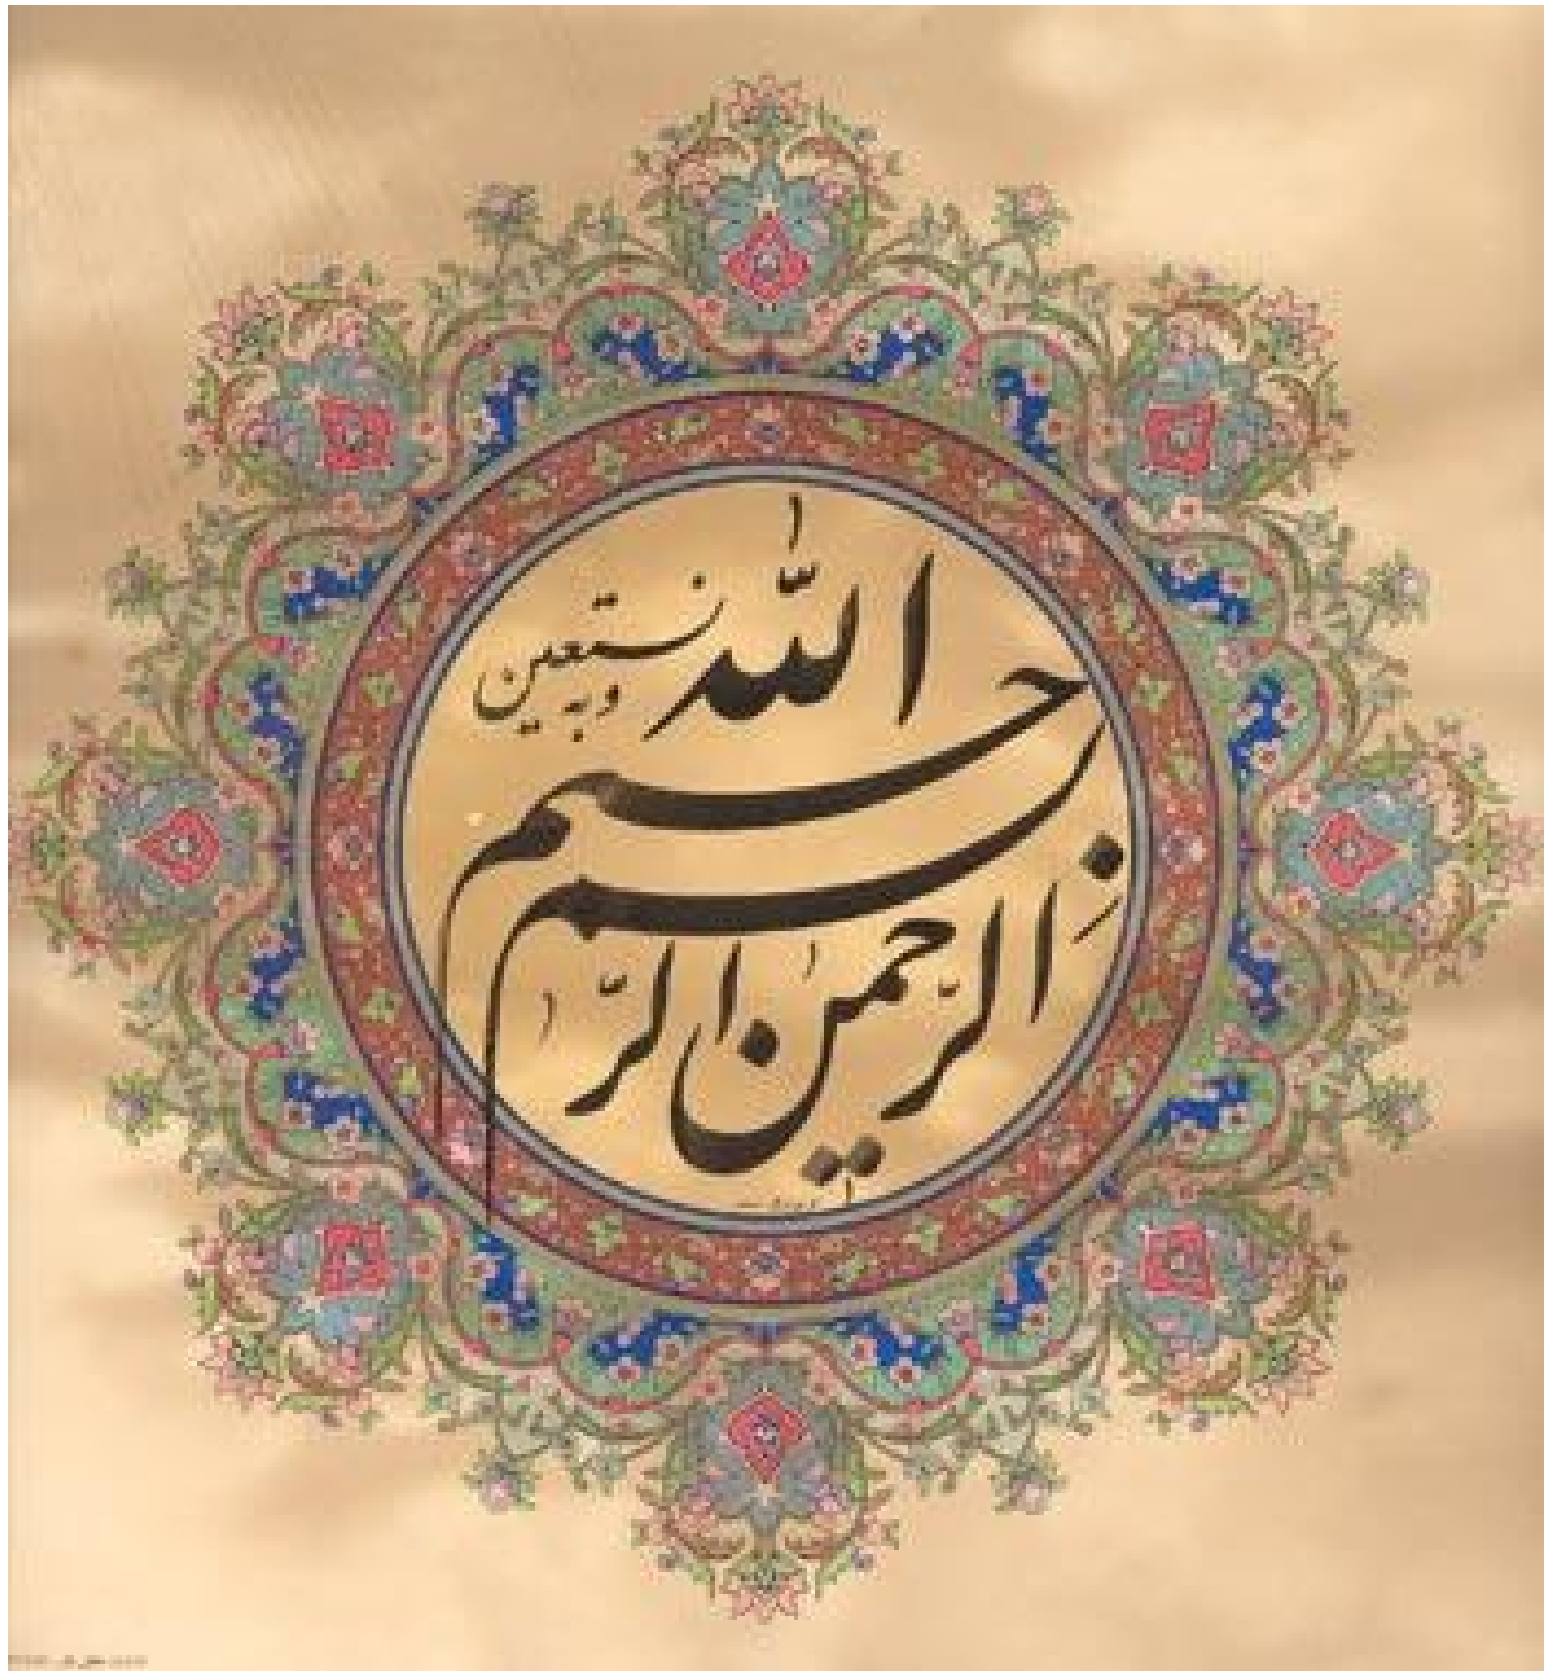 بسم الله الرّحمن الرّحیم
و به نستعین